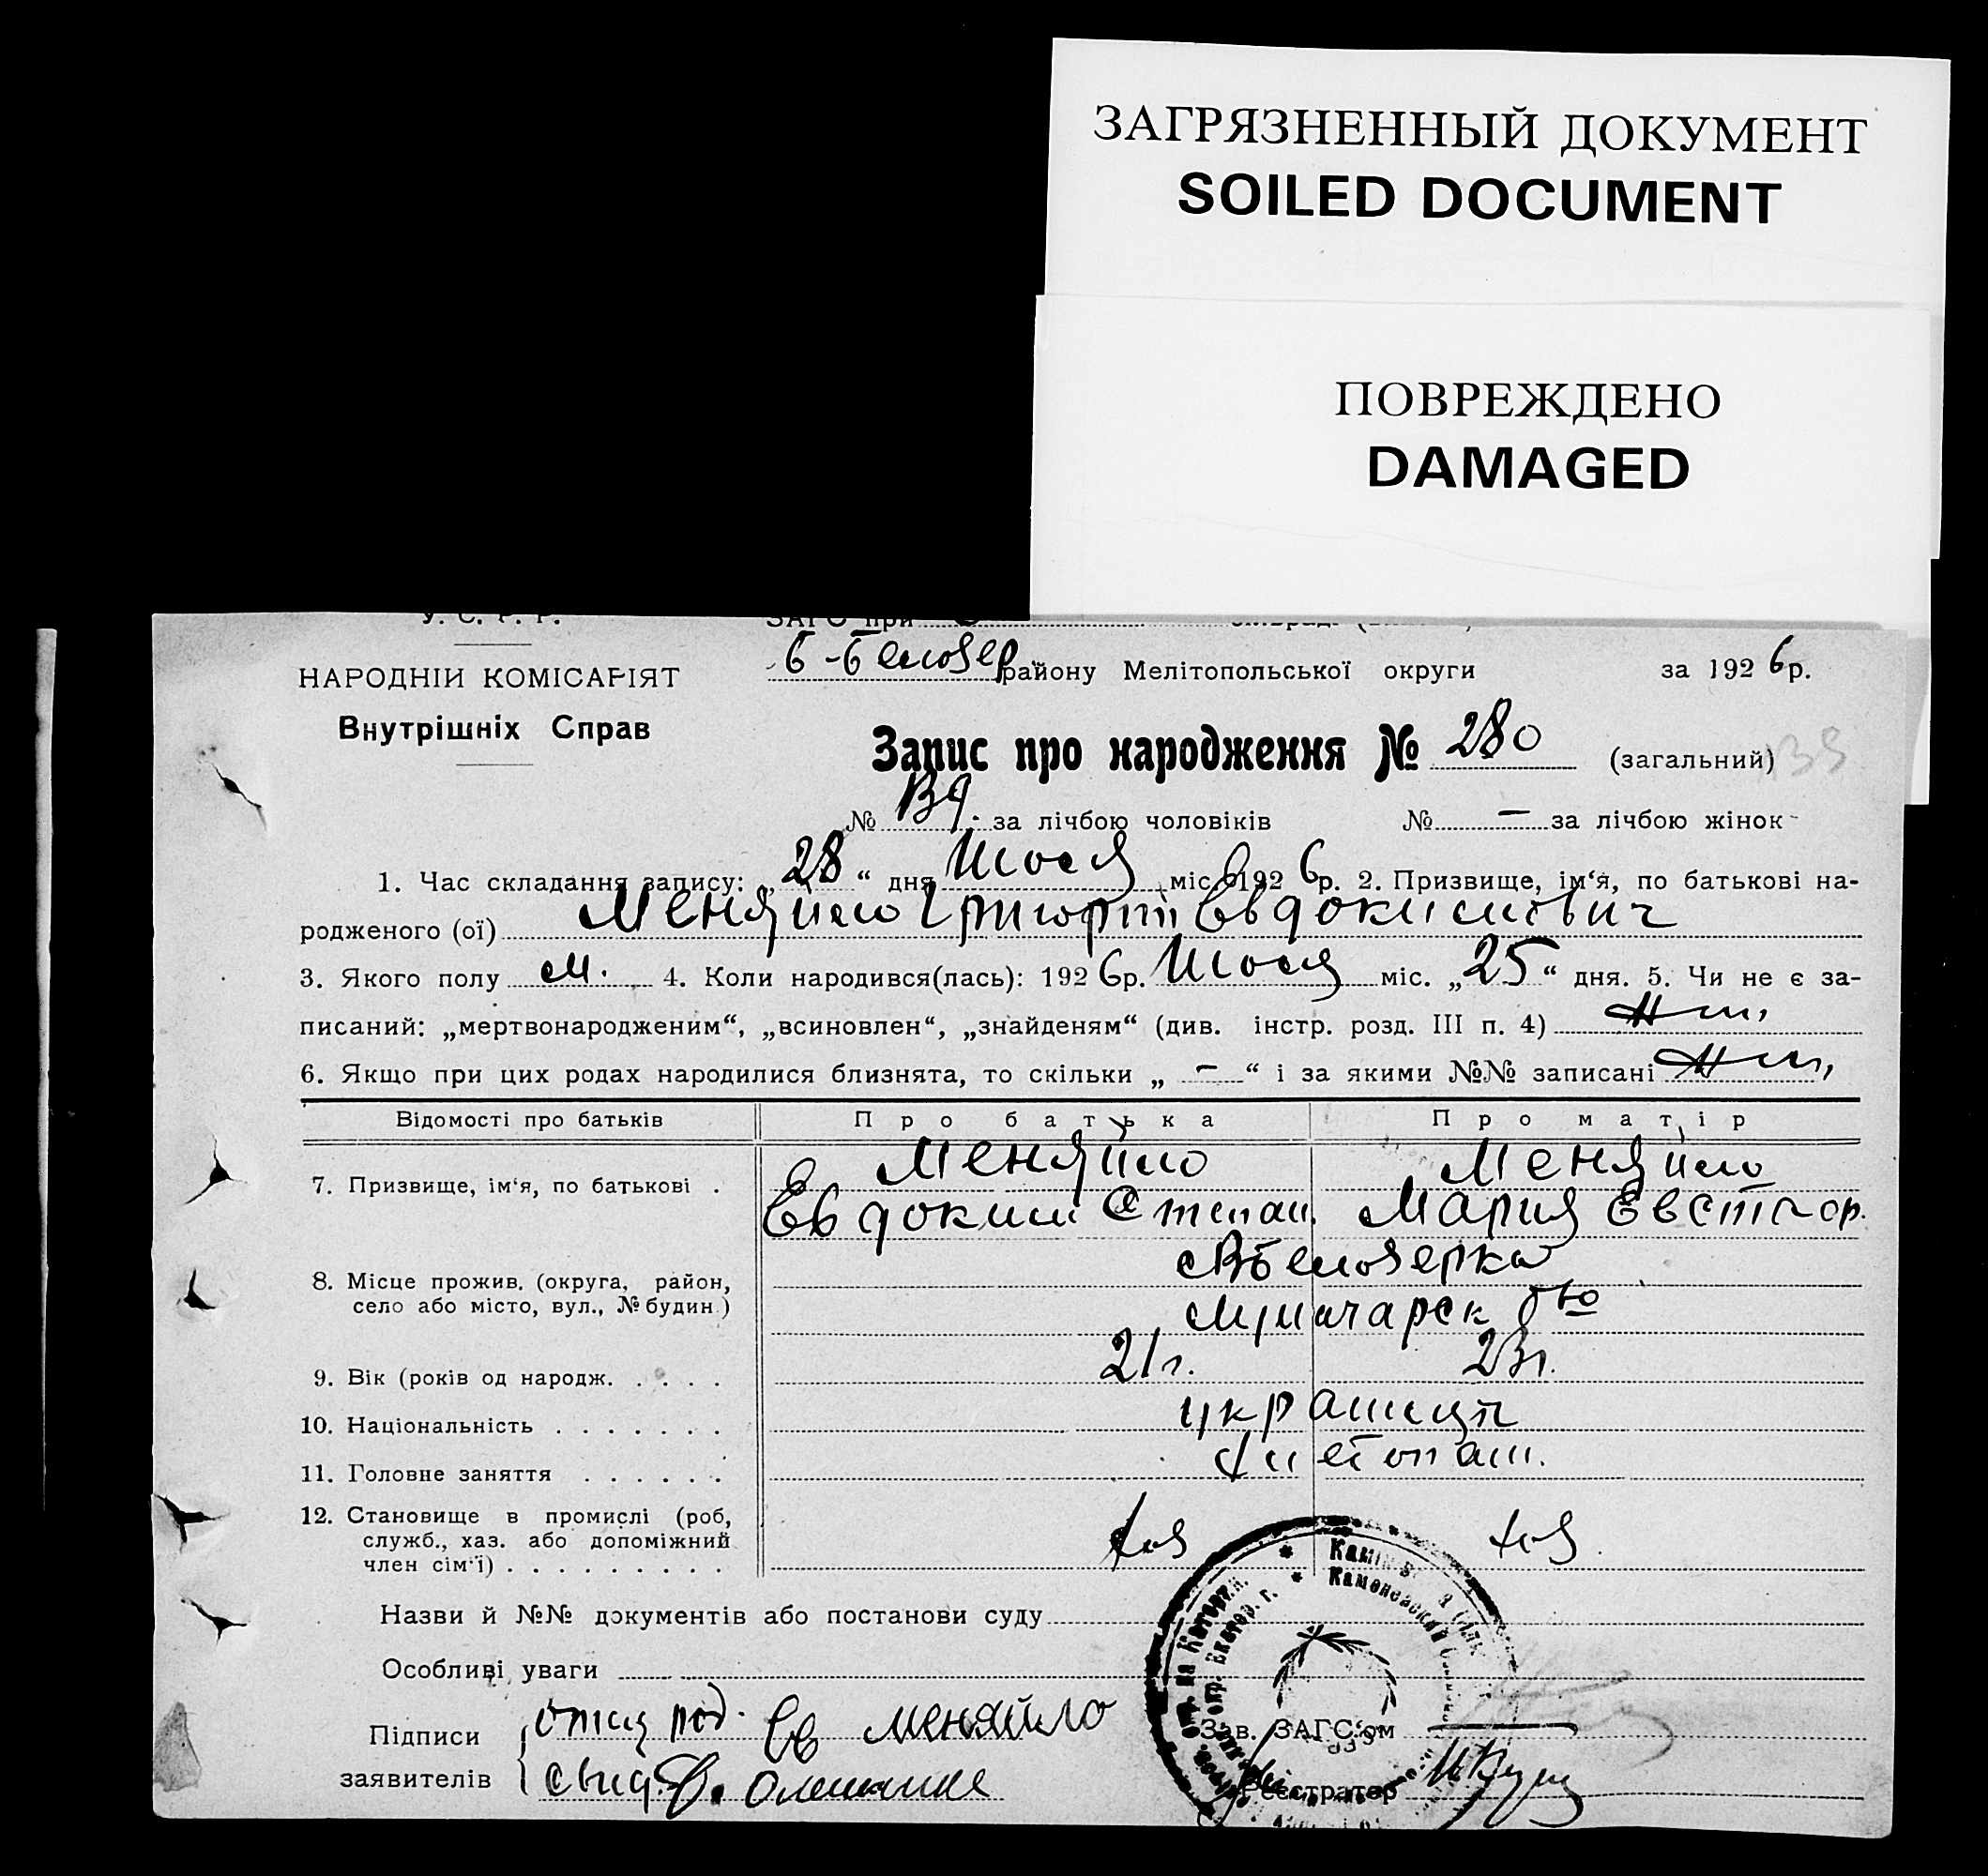 ЗАГРЯЗНЕННЫЙ ДОКУМЕНТ
SOILED DOCUMENT
ПОВРЕЖДЕНО
DAMAGED
У. С. Р. Р.
ЗАГС при
НАРОДНІЙ КОМІСАРІЯТ
Внутрішніх Справ
Б-Белозер. району Мелітопольської округи за 1926р.
Запис про народження № 280 (загальний)
№ за лічбою чоловіків № — за лічбою жінок
1. Час складання запису: „28“ дня Июля міс. 1926р. 2. Призвище, ім‘я, по батькові на-
родженого (ої) Меняйло Григорий Евдокимович
3. Якого полу м. 4. Коли народився(лась): 1926р. Июля міс. „25“ дня. 5. Чи не є за-
писаний: „мертвонародженим“, „всиновлен“, „знайденям“ (див. інстр. розд. III п. 4)
6. Якщо при цих родах народилися близнята, то скільки „ — “ і за якими №№ записані
Відомості про батьків Про батька Про матір
7. Призвище, ім‘я, по батькові . Меняйло Меняйло
Евдоким Степан. Мария Евстиг
8. Місце прожив. (округа, район, Белозерка
село або місто, вул., № будин.)
9. Вік (років од народж. . . . . 21г. 23г.
10. Національність . . . . . . .
11. Головне заняття . . . . . .
12. Становище в промислі (роб,
служб., хаз. або допоміжний
член сім‘ї) . . . . . . . . . хоз хоз
Назви й №№ документів або постанови суду
Особливі уваги
Підписи отец Ев Меняйло
заявителів свид.
Зав. ЗАГС‘ом
Реєстратор